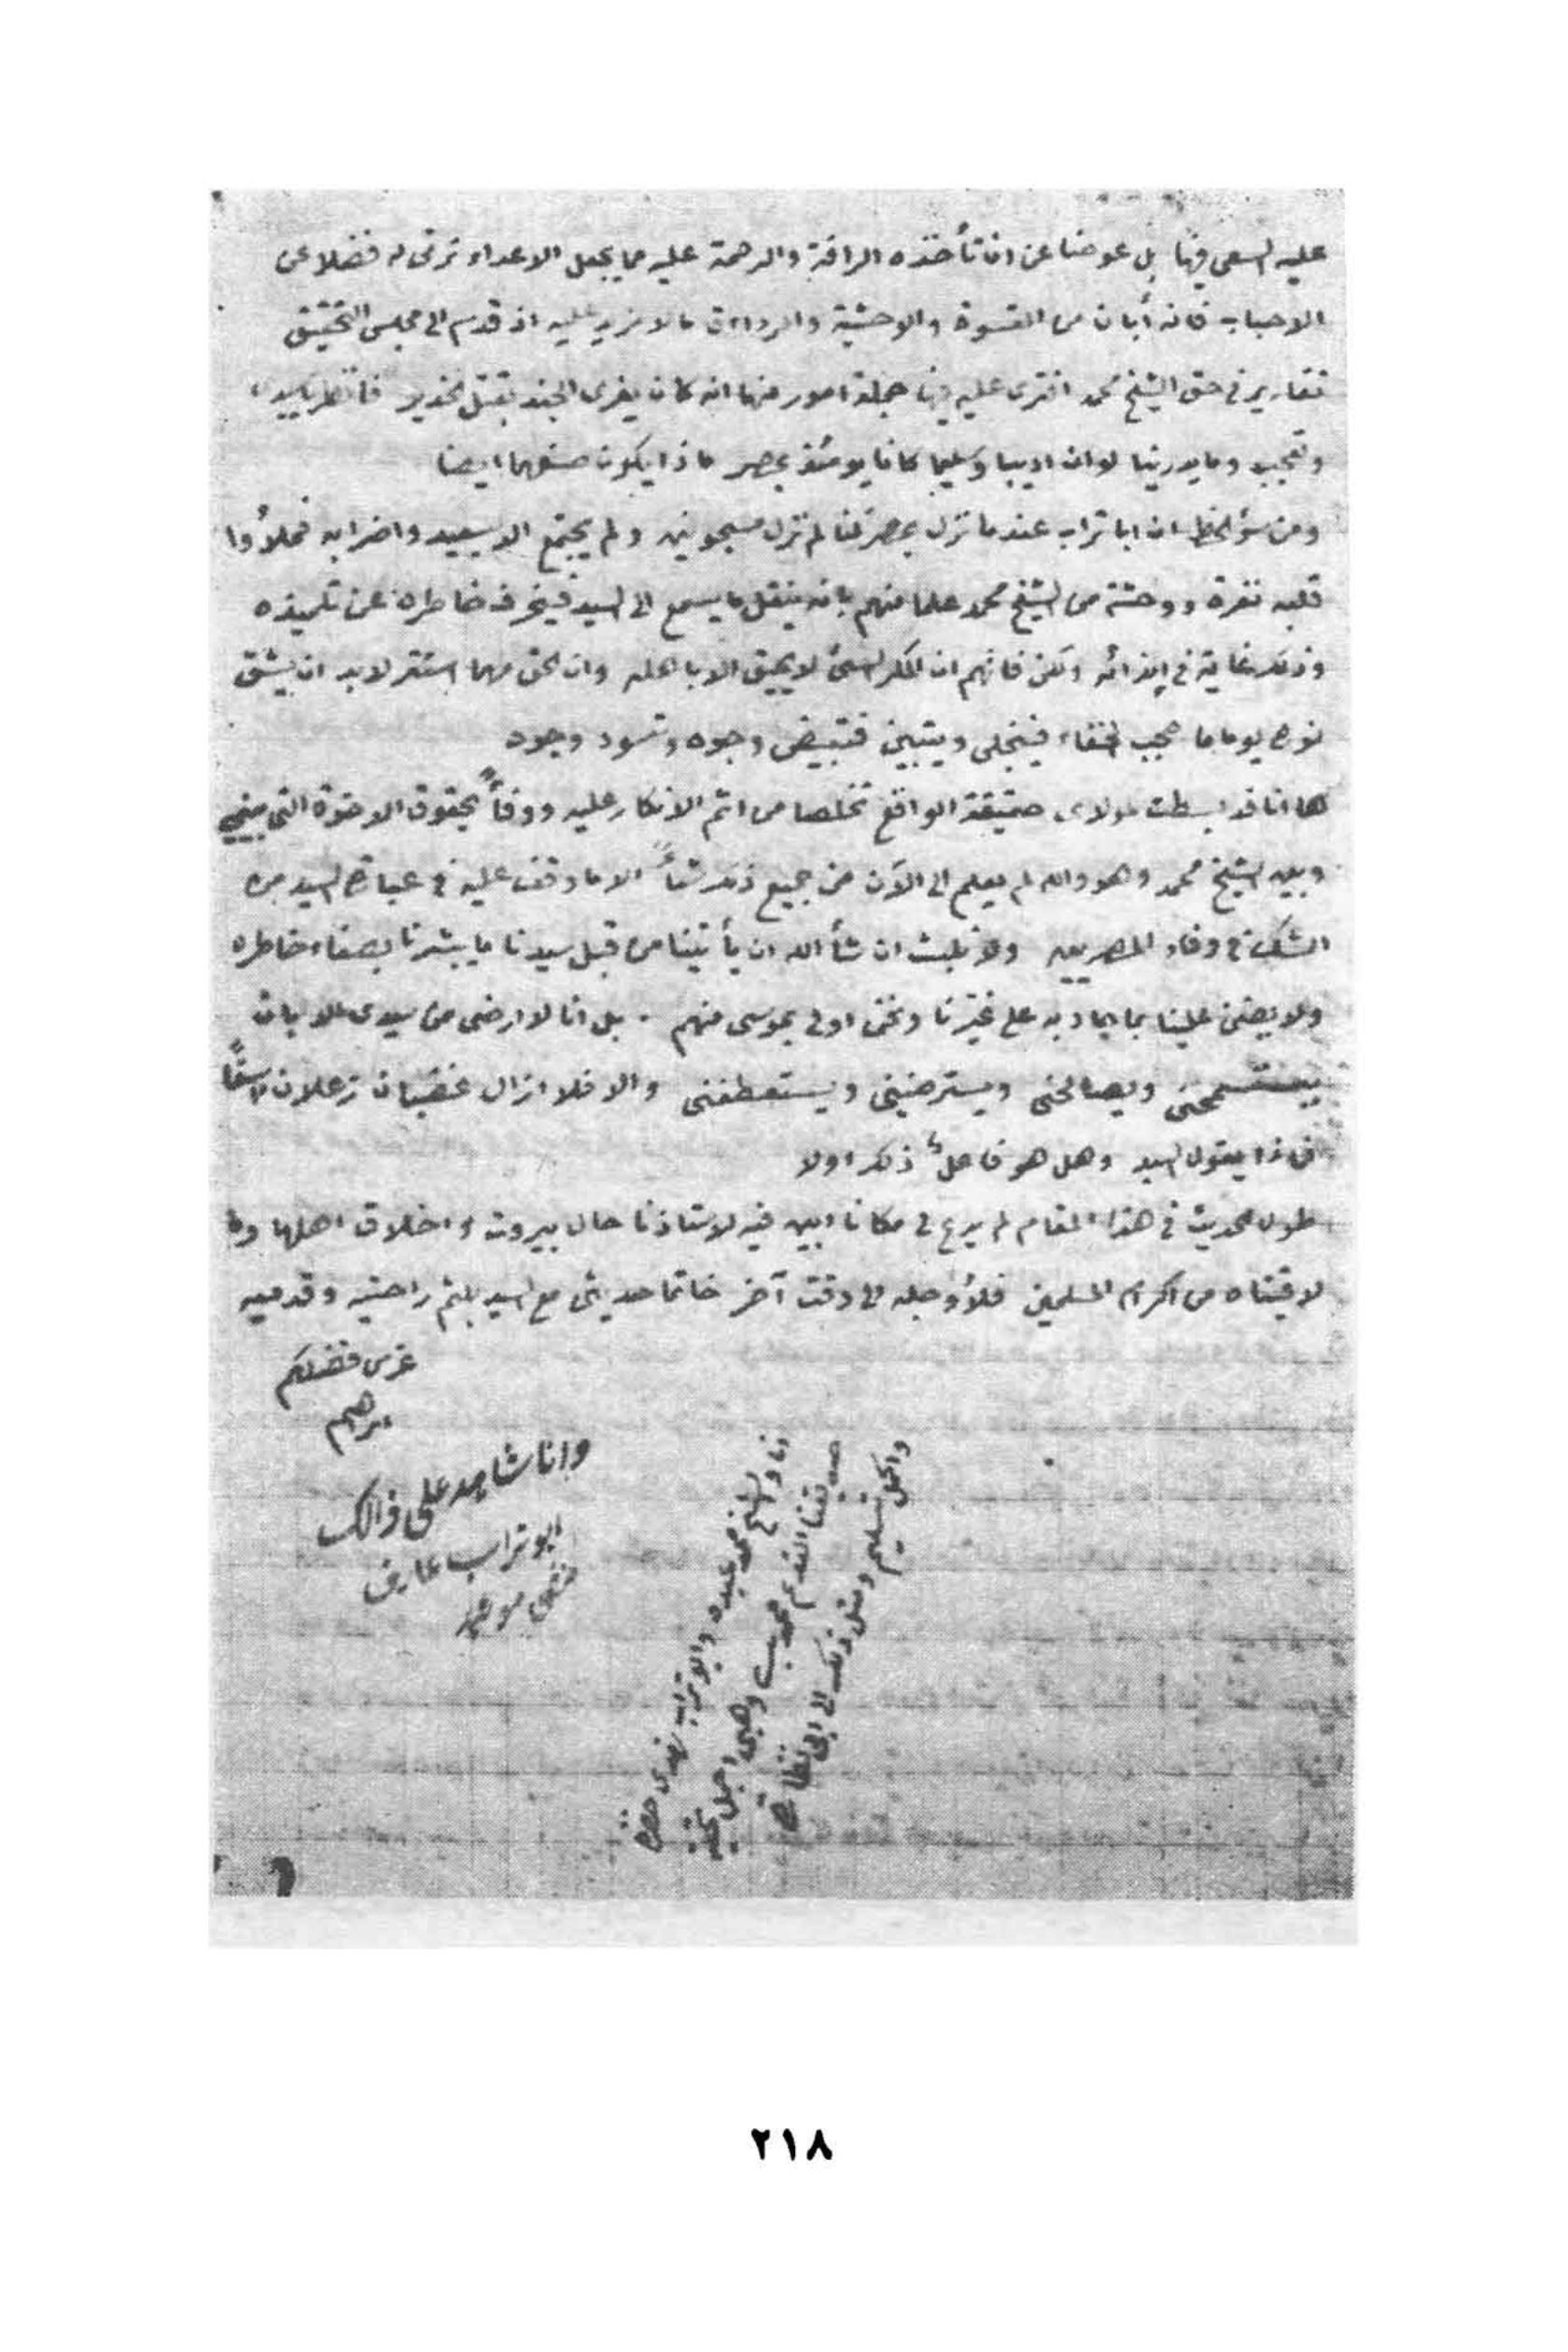 عليه السعى فيها بل عوضا عن ان تأخذه الرافة والرحمة عليه مما يجعل الاعداء ترثى له فضلا عن
الاحباب فانه أبان من القسوة والوحشية ما لا مزيد عليه اذ قدم الى مجلس التحقيق
تقارير فى حق الشيخ محمد افترى عليه فيها جملة امور منها انه كان يغرى الجند بقتل الخديو فانظر يا سيدى
وتعجب وما يدرينا لو ان اديبا وسليما كانا يومئذ بمصر ماذا يكون صنعهما ايضا
ومن سؤ الحظ ان ابا تراب عندما نزل بمصر كنا لم نزل مسجونين ولم يجتمع الا بسعيد واضرابه فملأوا
قلبه نفرة ووحشة من الشيخ محمد علما منهم بانه ينقل ما يسمع الى السيد فينحرف خاطره عن تلميذه
وذلك غاية فى إيذائه ولكن فاتهم ان المكر السئ لا يحيق الا باهله وان الحق مهما استتر لابد ان يشق
نوره يوما ما حجب الخفاء فينجلى ويتبين فتبيض وجوه وتسود وجوه
ها انا قد بسطت لمولاى حقيقة الواقع تخلصا من اثم الانكار عليه ووفاً بحقوق الاخوة التى بينى
وبين الشيخ محمد وهو والله لم يعلم الى الآن من جميع ذلك شأ الا ما وقف عليه فى عبارة السيد من
الشك فى وفاء المصريين ولا نلبث ان شأ الله ان يأتينا من قبل سيدنا ما يبشرنا بصفاء خاطره
ولا يضن علينا بما جاد به على غيرنا ونحن اولى بموسى منهم . بل انا لا ارضى من سيدى الا بان
يستسمحنى ويصالحنى ويسترضينى ويستعطفنى والا فلا ازال غضبان زعلان اسفًا
فماذا يقول السيد وهل هو فاعل ذلك اولا
طول الحديث فى هذا المقام لم يدع لى مكانا ابين فيه لاستاذنا حال بيروت واخلاق اهلها وما
لاقيناه من اكرام المسلمين فلأوجله الى وقت آخر خاتما حديثى مع السيد بلثم راحتيه وقدميه
غرس فضلكم
ابرهيم
وانا شاهد على ذالك
ابو تراب عارف
انا والشيخ محمد عبده وابو تراب نهدى حضرة
صديقنا القديم محمد بك وهبى اجمل تحية
واكمل تسليم ومثل ذلك الى ابى نظارة